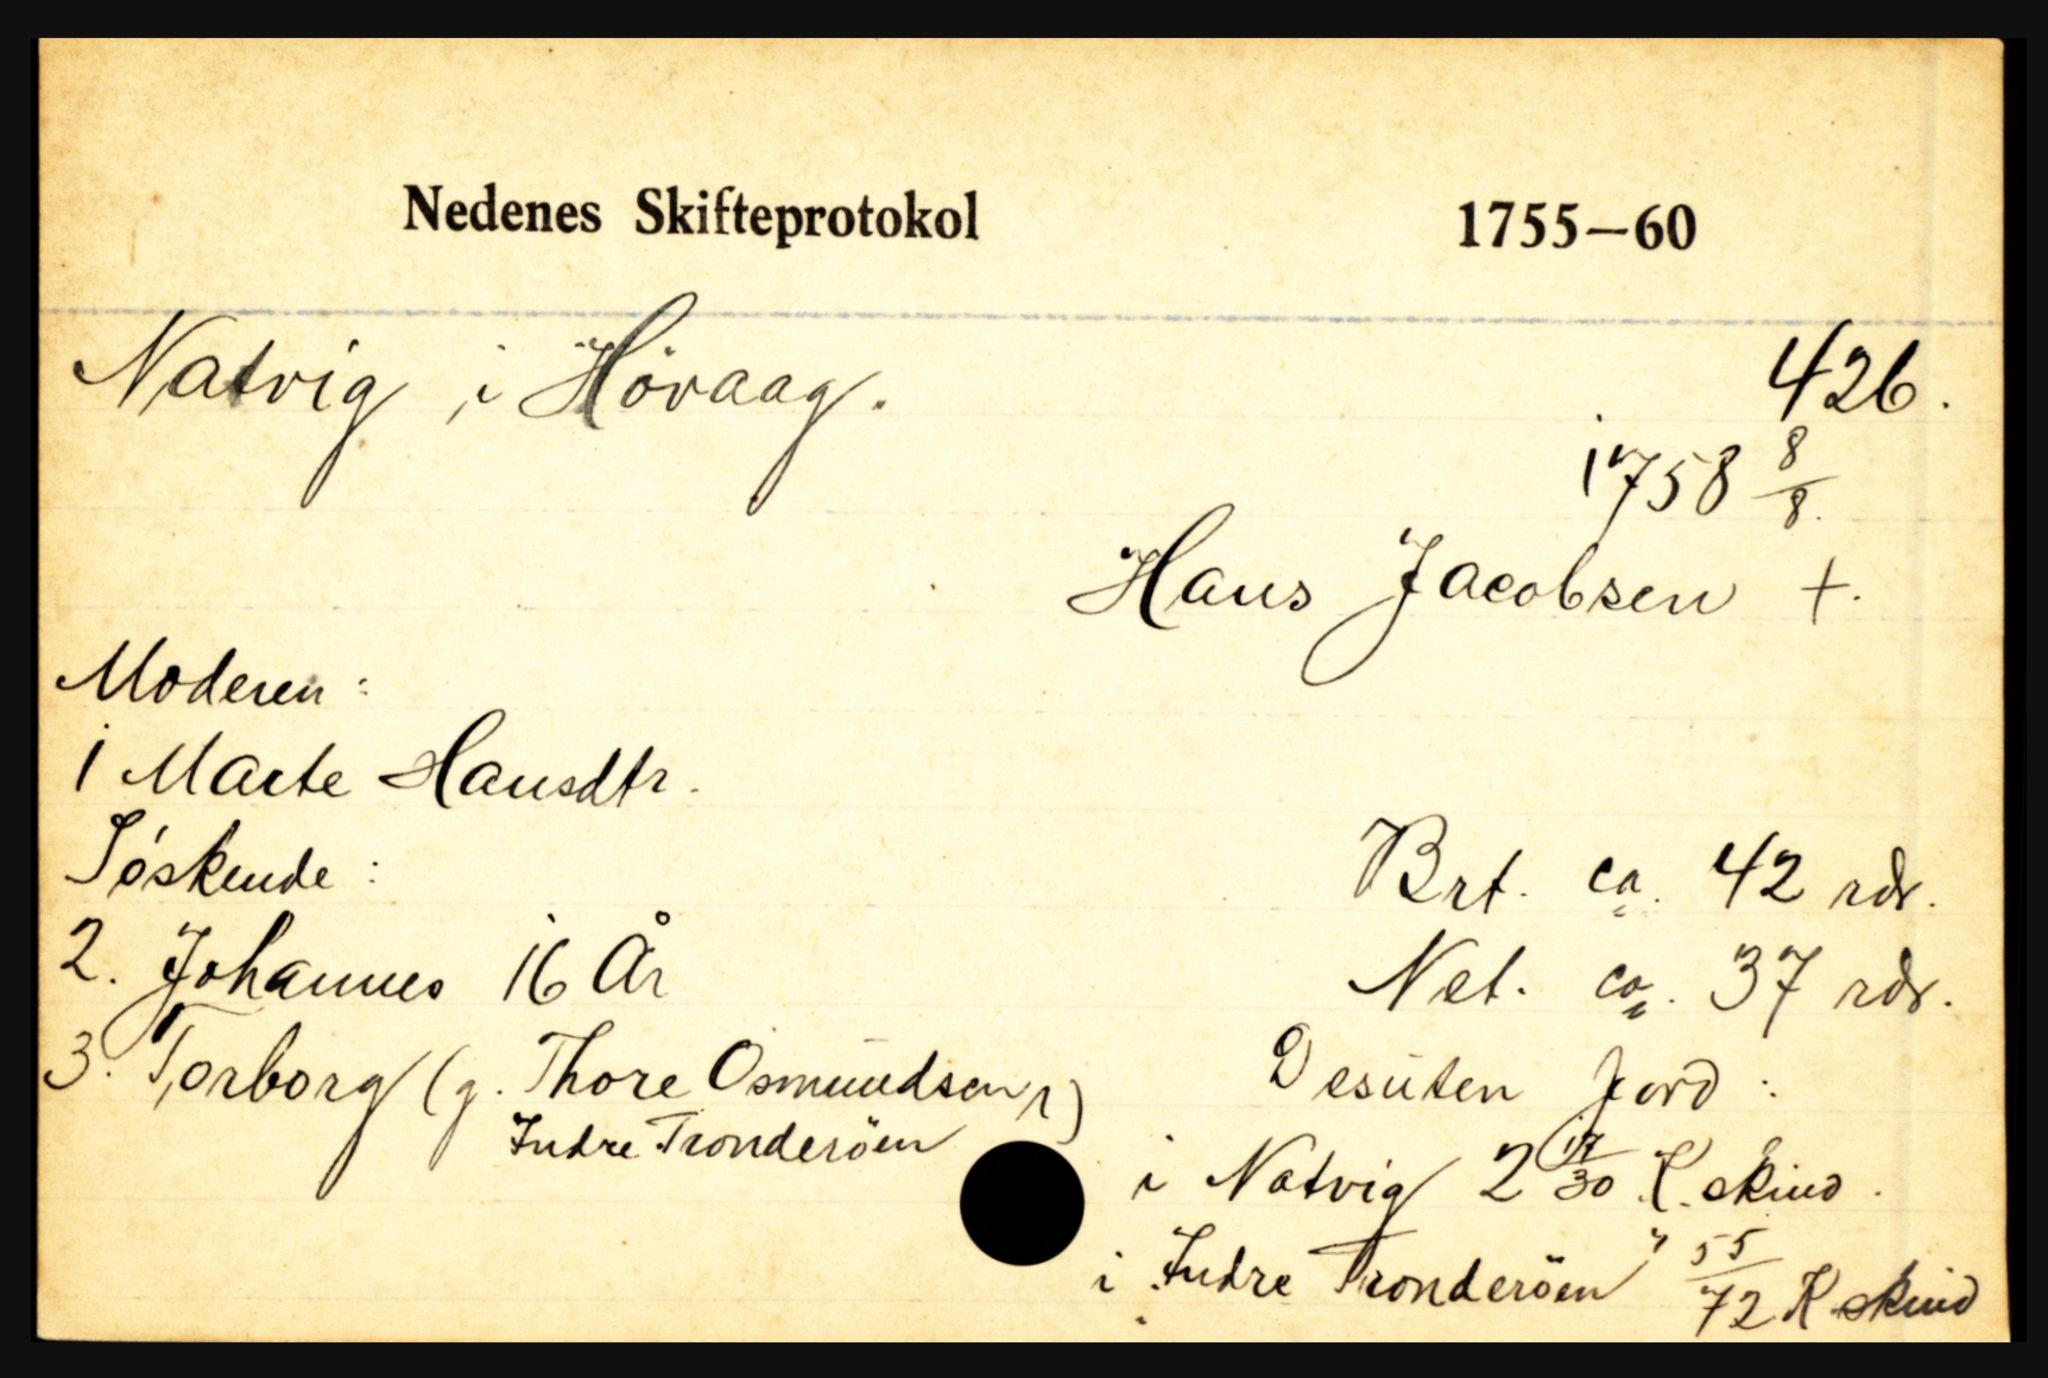 Nedenes Skifteprotokol 1755—60
Natvig i Hövaag. 426.
1758 8/8.
Hans Jacobsen +.
Moderen:
1 Marte Hansdtr.
Söskende:
Brt. ca. 42 rdr.
2. Johannes 16 År
Net. ca. 37 rdr.
3. Torborg (g. Thore Osmundsen,)
Indre Tronderöen
Desuten jord:
i Natvig 2 17/30 K. skind.
i Indre Tronderöen " 55/72 K skind